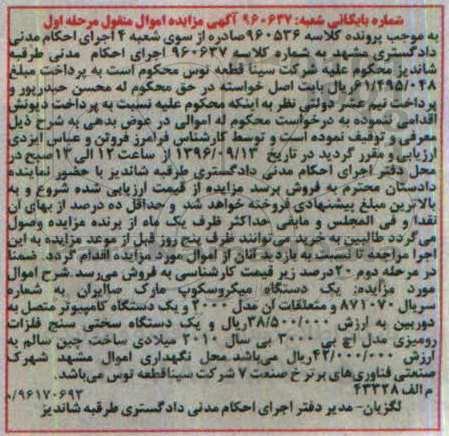 شماره بایگانی شعبه: ۹۶۰۶۳۷ آگهی مزایده اموال منقول مرحله اول
به موجب پرونده کلاسه ۹۶۰۵۳۶صادره از سوی شعبه ۴ اجرای احکام مدنی
دادگستری مشهد به شماره کلاسه ۹۶۰۶۳۷ اجرای احکام مدنی طرقبه
شاندیز محکوم علیه شرکت سینا قطعه توس محکوم است به پرداخت مبلغ
۶۱/۴۹۵/۰۴۸ریال بابت اصل خواسته در حق محکوم له محسن حیدرپور و
پرداخت نیم عشر دولتی نظر به اینکه محکوم علیه نسبت به پرداخت دیونش
اقدامی ننموده به درخواست محکوم له اموالی در عوض بدهی به شرح ذیل
معرفی و توقیف نموده است و توسط کارشناس فرامرز فروتن و عباس ایزدی
ارزیابی و مقرر گردید در تاریخ ۱۳۹۶/۰۹/۱۳ از ساعت ۱۲ الی ۱۳صبح در
محل دفتر اجرای احکام مدنی دادگستری طرقبه شاندیز با حضور نماینده
دادستان محترم به فروش برسد مزایده از قیمت ارزیابی شده شروع و به
بالاترین مبلغ پیشنهادی فروخته خواهد شد و حداقل ده درصد از بهای آن
نقدا و فی المجلس و مابقی حداکثر ظرف یک ماه از برنده مزایده وصول
می گردد طالبین به خرید می توانند ظرف پنج روز قبل از موعد مزایده به این
اجرا مراجعه تا نسبت به بازدید آنان از اموال مورد مزایده اقدام گردد. ضمنا
در مرحله دوم ۲۰درصد زیر قیمت کارشناسی به فروش می‌رسد.شرح اموال
مورد مزایده: یک دستگاه میکروسکوپ مارک صاایران به شماره
سریال ۸۷۱۰۷۰ و متعلقات آن مدل ۲۰۰۰ و یک دستگاه کامپیوتر متصل به
دوربین به ارزش ۳۸/۵۰۰/۰۰۰ریال و یک دستگاه سختی سنج فلزات
رومیزی مدل اچ بی ۳۰۰۰ بی سال ۲۰۱۰ میلادی ساخت چین سالم به
ارزش ۴۲/۰۰۰/۰۰۰ریال می‌باشد.محل نگهداری اموال مشهد شهرک
صنعتی فناوری‌های برتر خ صنعت ۷ شرکت سیناقطعه توس می‌باشد.
م الف ۴۳۳۲۸
۹۶۱۷۰۶۹۲/
لگزیان- مدیر دفتر اجرای احکام مدنی دادگستری طرقبه شاندیز